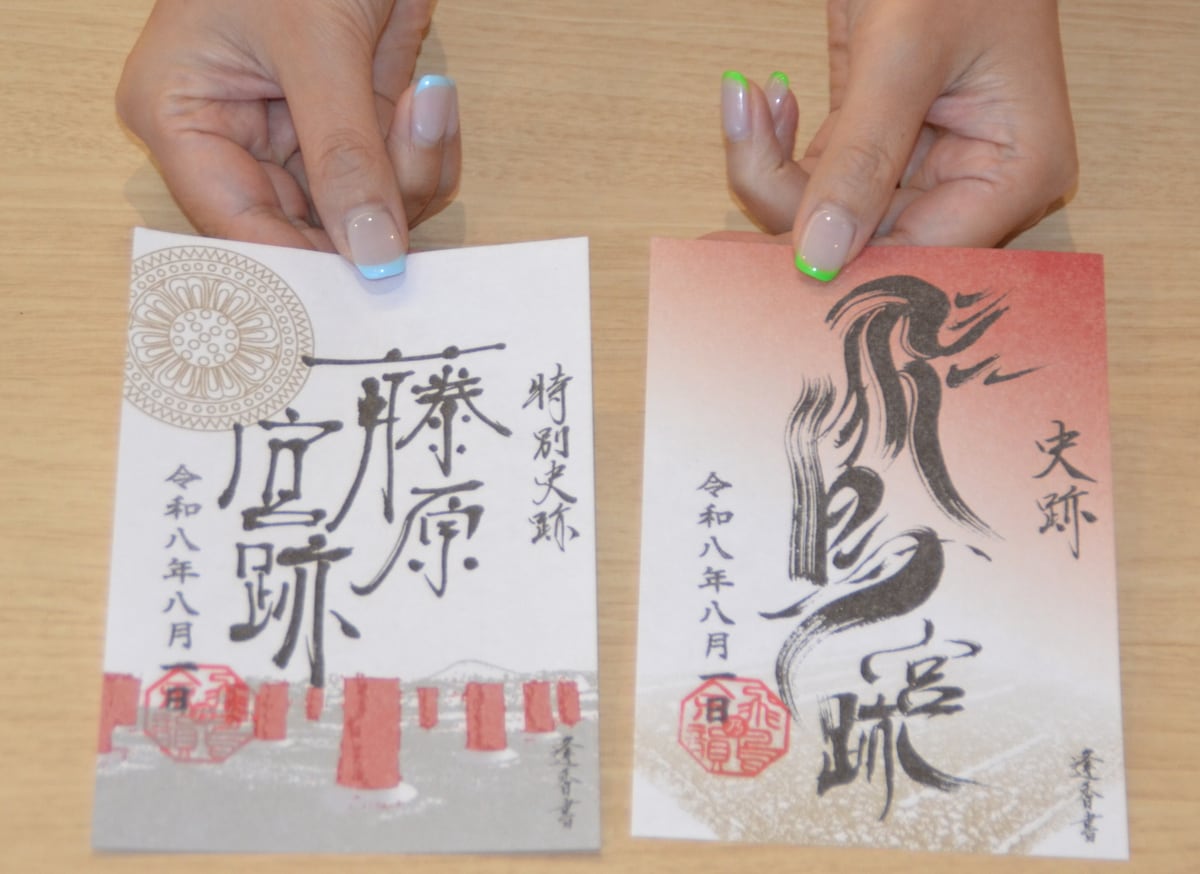 特別史跡
藤原
宮跡
令和八年八月一日
逢香書
史跡
飛鳥
宮跡
令和八年八月一日
逢香書